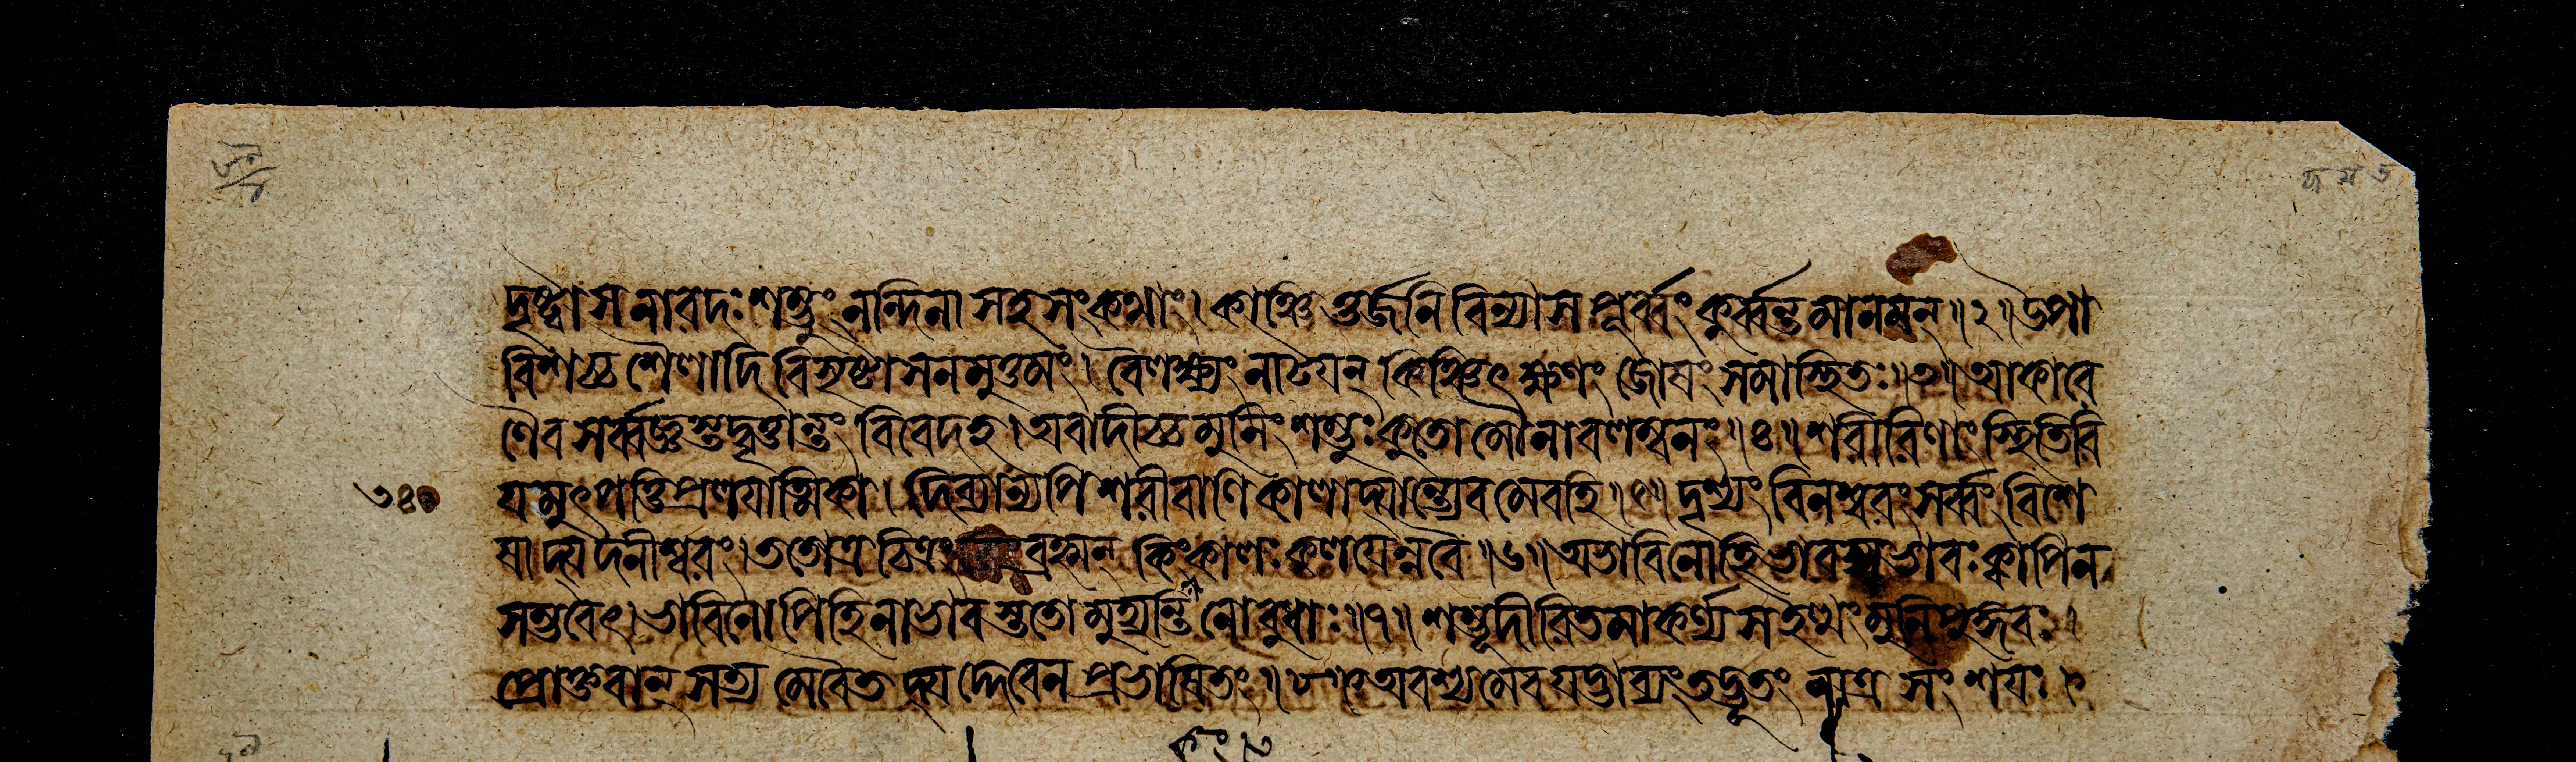 দৃষ্ট্বা স নারদঃ শম্ভুং নন্দিনা সহ সংকথাং। কাঞ্চিত্তর্জনিবিন্যাসপূর্ব্বং কুর্ব্বন্তমানমন্॥২॥উপা
বিশচ্চ শৈলাদিবিসৃষ্টাসনমুত্তমং। বৈলক্ষ্যং নাটয়ন্ কিঞ্চিৎ ক্ষণং জোষং সমাস্থিতঃ॥৩॥আকারে
ণৈব সর্ব্বজ্ঞস্তদ্বৃত্তান্তং বিবেদ হ। অবাদীচ্চ মুনিং শম্ভুঃ কুতো মৌনাবলম্বনং॥৪॥শরীরিণাং স্থিতিরি
যমুৎপত্তিপ্রলযাত্মিকা। দিব্যান্যপি শরীরাণি কালাদ্যান্ত্যেবমেব হি॥৫॥দৃশ্যং বিনশ্বরং সর্ব্বং বিশে
ষাদ্যদনীশ্বরং। ততোত্র চিত্রং ব্রহ্মন্ কিং কালঃ কলযেন্নবৈ॥৬॥অভাবিনো হি ভাবস্য ভাবঃ ক্বাপি ন
সম্ভবেৎ। ভাবিনোপি হি নাভাবস্ততো মুহ্যন্তি নো বুধাঃ॥৭॥শম্ভূদীরিতমাকর্ণ্য স ইত্থং মুনিপুঙ্গবঃ।
প্রোক্তবান্ সত্যমেবৈতদ্যদ্দেবেন প্রভাষিতং॥৮॥অবশ্যমেব যদ্ভাব্যং তদ্ভূতং নাত্র সংশযঃ।